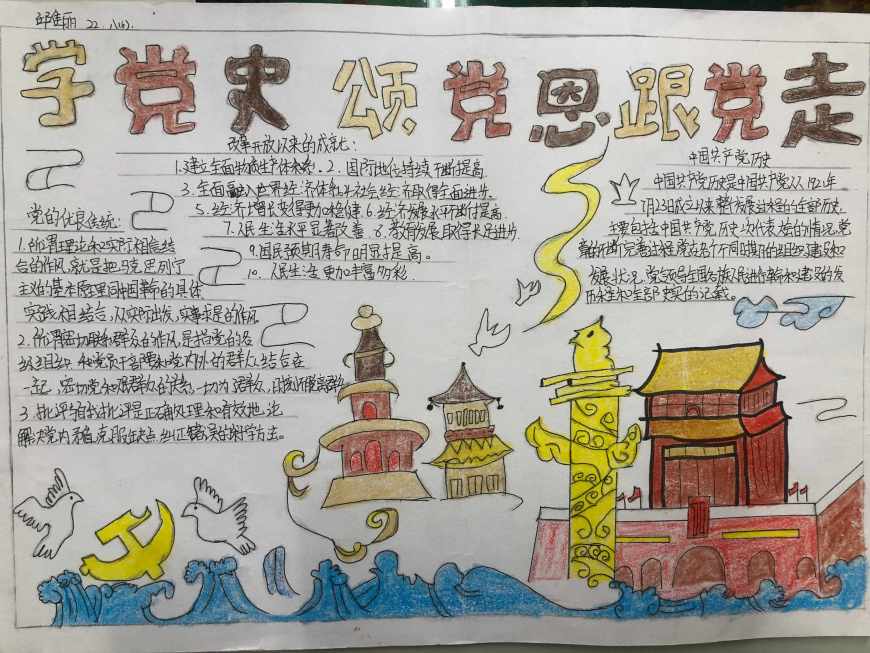 22.八(4).
学党史 颂党恩跟党走
改革开放以来的成就:
1.建立全面物质生产体系. 2.国际地位持续不断提高.
3.全面融入世界经济体和社会经济取得全面进步.
5.经济增长变得更加稳健 6.经济发展水平不断提高.
7.人民生活水平显著改善 8.教育发展取得长足进步.
9.国民预期寿命明显提高。
10.人民生活更加丰富多彩.
党的优良传统:
1.所谓理论和实际相结
合的作风,就是把马克思列宁
主义的基本原理同中国革命的具体
实践相结合,从实际出发,实事求是的作风
2.所谓密切联系群众的作风,是指党的各
级组织和党员干部要和党内外的群众结合在
一起,密切党和群众的关系,一切为了群众,
3.批评与自我批评是正确处理和有效地
解决党内矛盾克服缺点,纠正错误的科学方法。
中国共产党历史
中国共产党历史是中国共产党从1921年
7月23日成立以来整个发展过程的全部历史.
主要包括在中国共产党历史次代表大会的情况,党
章的不断完善过程,党在各个不同时期的组织建设和
发展状况,党领导全国各族人民进行革命和建设的发
历程和全部史实的记载。